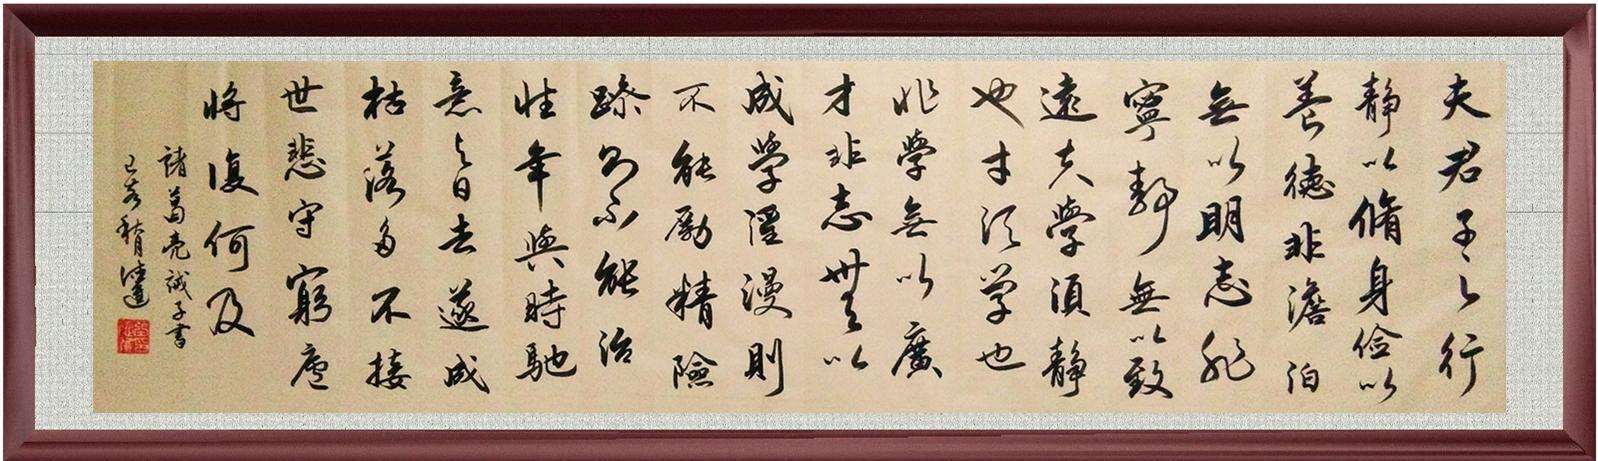 夫君子之行
静以脩身俭以
養德非澹泊
無以明志非
寧静無以致
遠夫學須静
也才須學也
非學無以廣
才非志無以
成學滛漫則
不能勵精險
躁則不能治
性年與時馳
意与日去遂成
枯落多不接
世悲守窮廬
將復何及
諸葛亮誡子書
己亥